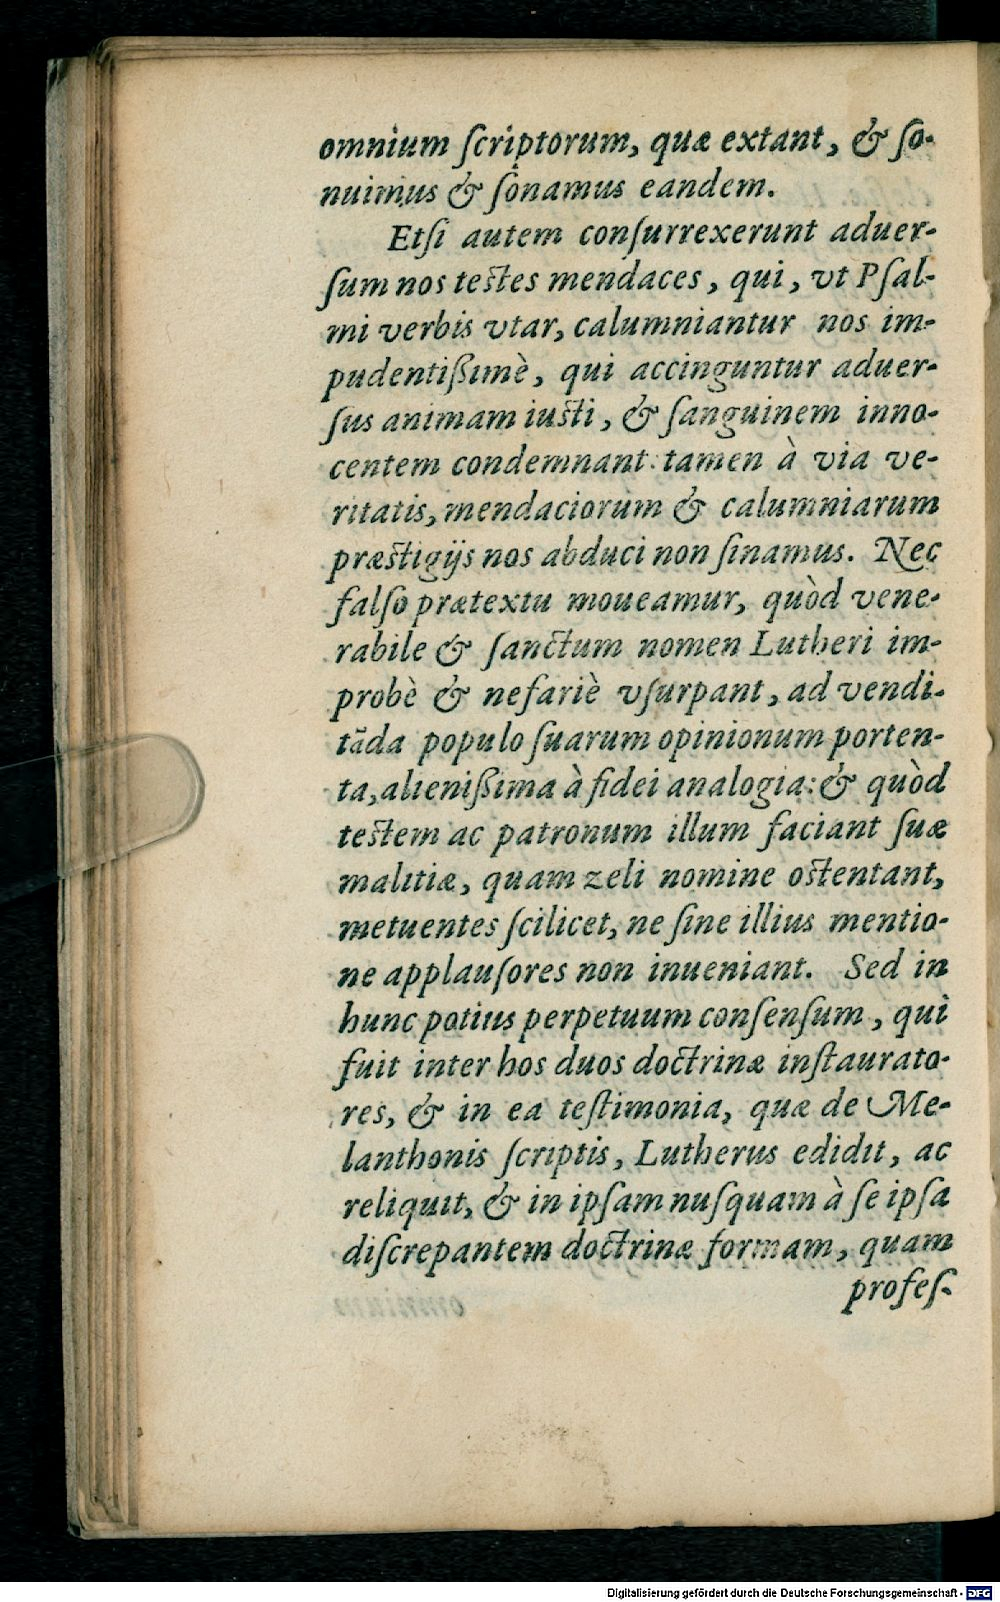 omnium ſcriptorum, quæ extant, & ſo-
nuimus & ſonamus eandem.
Etſi autem conſurrexerunt aduer-
ſum nos teſtes mendaces, qui, vt Pſal-
mi verbis vtar, calumniantur nos im-
pudentißimè, qui accinguntur aduer-
ſus animam iuſti, & ſanguinem inno-
centem condemnant: tamen à via ve-
ritatis, mendaciorum & calumniarum
præſtigijs nos abduci non ſinamus. Nec
falſo prætextu moueamur, quòd vene-
rabile & ſanctum nomen Lutheri im-
probè & nefariè vſurpant, ad vendi-
tãda populo ſuarum opinionum porten-
ta, alienißima à fidei analogia: & quòd
teſtem ac patronum illum faciant ſuæ
malitiæ, quam zeli nomine oſtentant,
metuentes ſcilicet, ne ſine illius mentio-
ne applauſores non inueniant. Sed in
hunc potius perpetuum conſenſum, qui
fuit inter hos duos doctrinæ inſtaurato-
res, & in ea teſtimonia, quæ de Me-
lanthonis ſcriptis, Lutherus edidit, ac
reliquit, & in ipſam nuſquam à ſe ipſa
diſcrepantem doctrinæ formam, quam
profeſ-
Digitalisierung gefördert durch die Deutsche Forschungsgemeinschaft - DFG